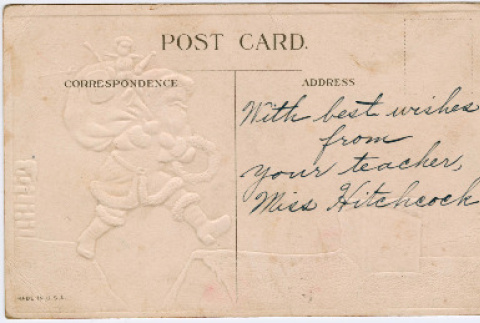 POST CARD.
CORRESPONDENCE
ADDRESS
With best wishes
from
your teacher,
Miss Hitchcock
MADE IN U.S.A.